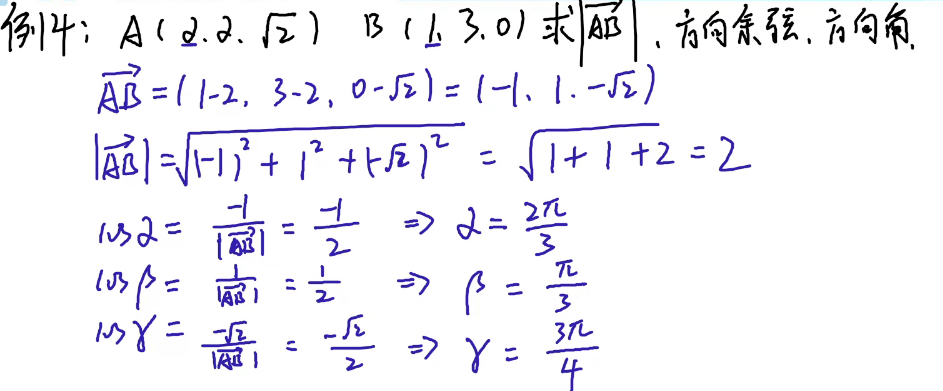 例14: A(2.2.√2) B(1,3.0) 求|AB→|、方向余弦、方向角.
AB→=(1-2, 3-2, 0-√2)=(-1, 1.-√2)
|AB→|=√((-1)²+1²+(-√2)²) = √(1+1+2) = 2
cosα = -1/|AB→| = -1/2 ⇒ α = 2π/3
cosβ = 1/|AB→| = 1/2 ⇒ β = π/3
cosγ = -√2/|AB→| = -√2/2 ⇒ γ = 3π/4